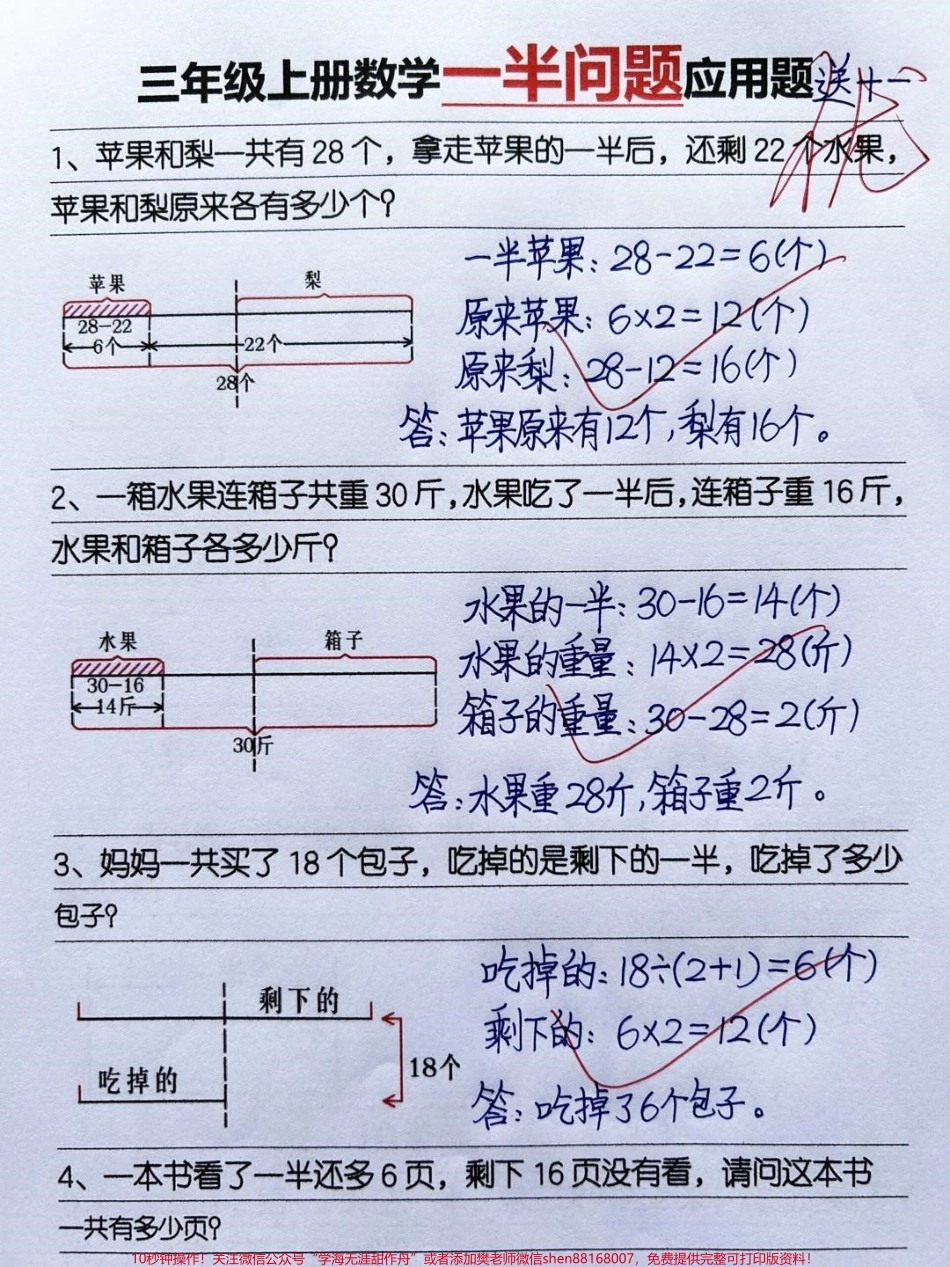 三年级上册数学一半问题应用题送十一
1、苹果和梨一共有28个，拿走苹果的一半后，还剩22个水果，
苹果和梨原来各有多少个？
苹果
梨
28-22
6个
22个
28个
一半苹果：28-22=6(个)
原来苹果：6×2=12(个)
原来梨：28-12=16(个)
答：苹果原来有12个，梨有16个。
2、一箱水果连箱子共重30斤，水果吃了一半后，连箱子重16斤，
水果和箱子各多少斤？
水果
箱子
30-16
14斤
30斤
水果的一半：30-16=14(个)
水果的重量：14×2=28(斤)
箱子的重量：30-28=2(斤)
答：水果重28斤，箱子重2斤。
3、妈妈一共买了18个包子，吃掉的是剩下的一半，吃掉了多少
包子？
剩下的
吃掉的
18个
吃掉的：18÷(2+1)=6(个)
剩下的：6×2=12(个)
答：吃掉了6个包子。
4、一本书看了一半还多6页，剩下16页没有看，请问这本书
一共有多少页？
10秒钟操作！关注微信公众号“学海无涯甜作舟”或者添加樊老师微信shen88168007，免费提供完整可打印版资料！